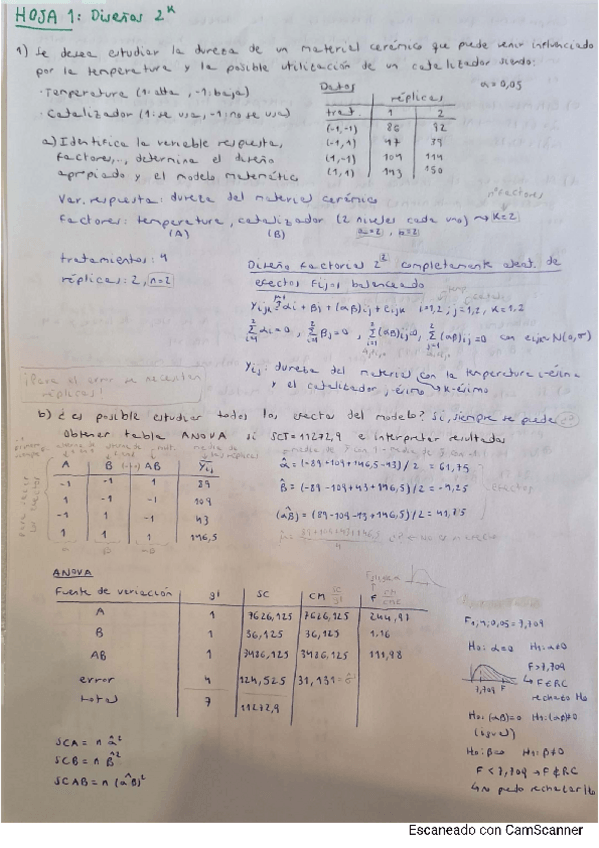 HOJA 1: Diseños 2^K
1) Se desea estudiar la dureza de un material cerámico que puede venir influenciado
por la temperatura y la posible utilización de un catalizador siendo:
· Temperatura (1: alta, -1: baja)
· Catalizador (1: se usa, -1: no se usa)
Datos
α = 0,05
réplicas
trat. 1 2
(-1,-1) 86 92
(-1,1) 47 39
(1,-1) 104 114
(1,1) 143 150
a) Identifica la variable respuesta,
factores,..., determina el diseño
apropiado y el modelo matemático
Var. respuesta: dureza del material cerámico
nº factores
Factores: temperatura, catalizador (2 niveles cada uno) → K=2
(A) (B) a=2, b=2
tratamientos: 4
réplicas: 2, n=2
Diseño factorial 2² completamente aleat. de
efectos fijos balanceado
i=1,2; j=1,2, K=1,2
con eijk~N(0,σ)
Yij: dureza del material con la temperatura i-ésima
y el catalizador j-ésimo K-ésimo
¡Para el error se necesitan
réplicas!
b) ¿Es posible estudiar todos los efectos del modelo? Sí, siempre se puede
Obtener tabla ANOVA si SCT=11272,9 e interpretar resultados
A B AB Yij
-1 -1 1 89
1 -1 -1 109
-1 1 -1 43
1 1 1 146,5
α̂ = (-89+109+146,5-43)/2 = 61,75
β̂ = (-89-109+43+146,5)/2 = -4,25
(αβ)̂ = (89-109-43+146,5)/2 = 41,75
efectos
ANOVA
Fuente de variación gl SC CM F
A 1 7626,125 7626,125 244,97
B 1 36,125 36,125 1.16
AB 1 3486,125 3486,125 111,98
error 4 124,525 31,131
total 7 11272,9
SCA = n α̂²
SCB = n β̂²
SCAB = n (αβ)̂²
F1,4;0,05=7,709
H0: α=0 H1: α≠0
F>7,709
↳ F∈RC
7,709 F
rechazo H0
H0: (αβ)=0 H1: (αβ)≠0
(igual)
H0: β=0 H1: β≠0
F < 7,709 → F∉RC
↳ no puedo rechazar H0
Escaneado con CamScanner